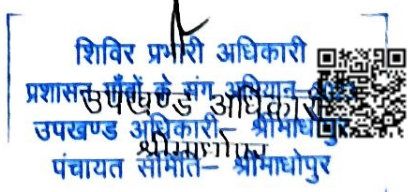 शिविर प्रभारी अधिकारी
प्रशासन गाँवों के संग अभियान
उपखण्ड अधिकारी
उपखण्ड अधिकारी– श्रीमाधोपुर
श्रीमाधोपुर
पंचायत समिति– श्रीमाधोपुर